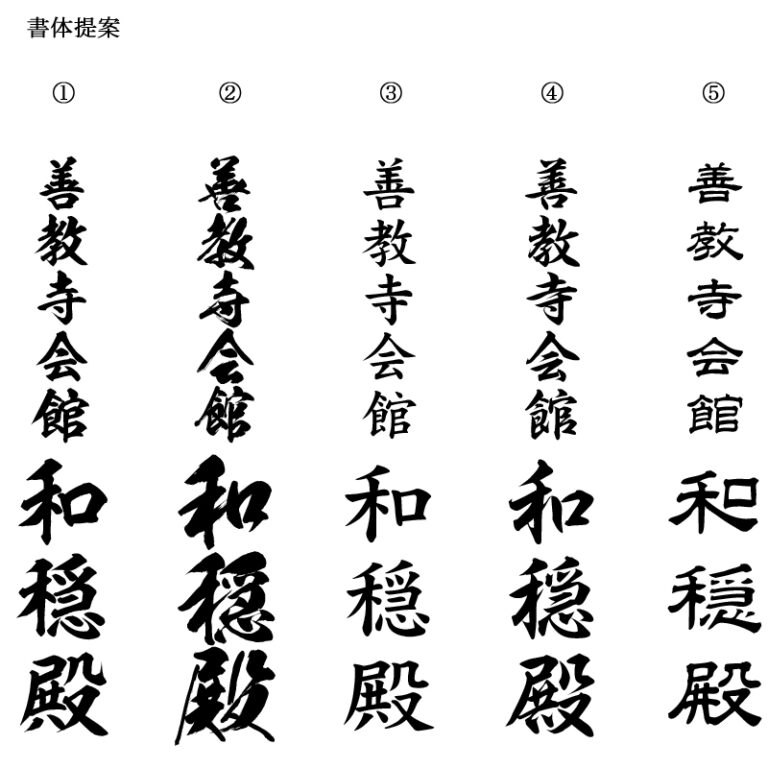 書体提案
① ② ③ ④ ⑤
善教寺会館
和穏殿
善教寺会館
和穏殿
善教寺会館
和穏殿
善教寺会館
和穏殿
善教寺会館
和穏殿